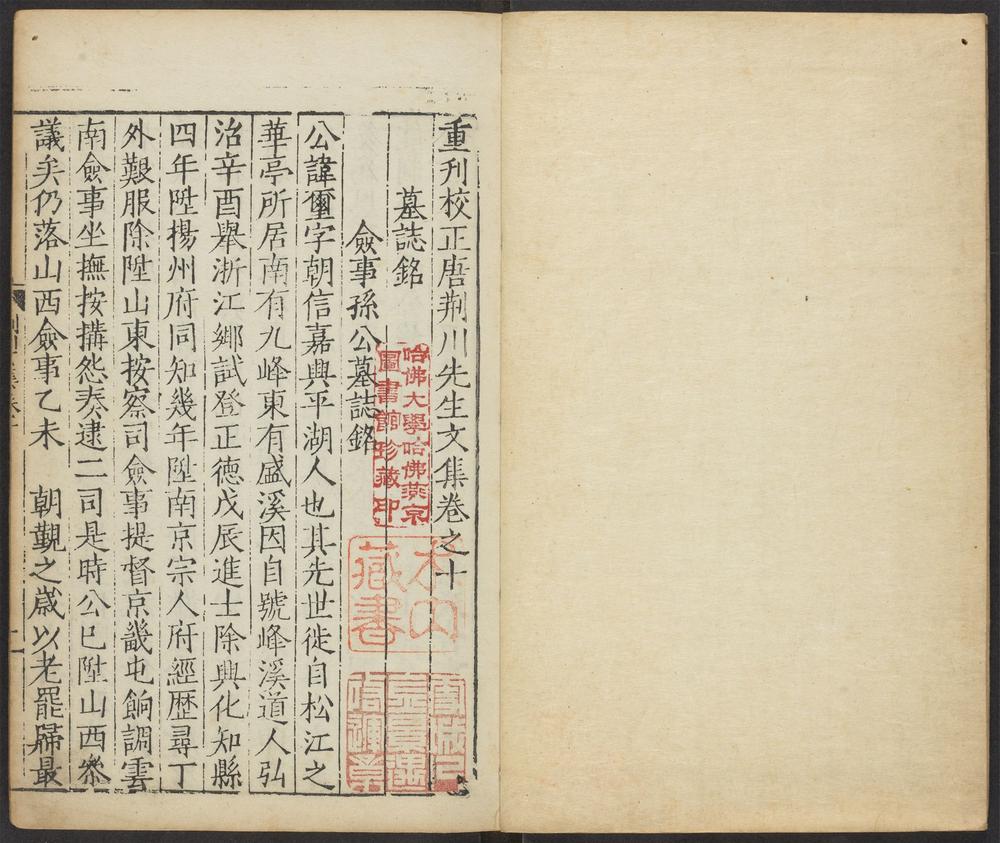 重刋校正唐荆川先生文集卷之十
墓誌銘
僉事孫公墓誌銘
公諱璽字朝信嘉興平湖人也其先世徙自松江之
華亭所居南有九峰東有盛溪因自號峰溪道人弘
治辛酉舉浙江鄉試登正德戊辰進士除興化知縣
四年陞揚州府同知幾年陞南京宗人府經歷尋丁
外艱服除陞山東按察司僉事提督京畿屯餉調雲
南僉事坐撫按搆怨奏逮二司是時公已陞山西叅
議矣仍落山西僉事乙未 朝覲之歲以老罷歸最
哈佛大學哈佛燕京
圖書館珍藏印
藏書